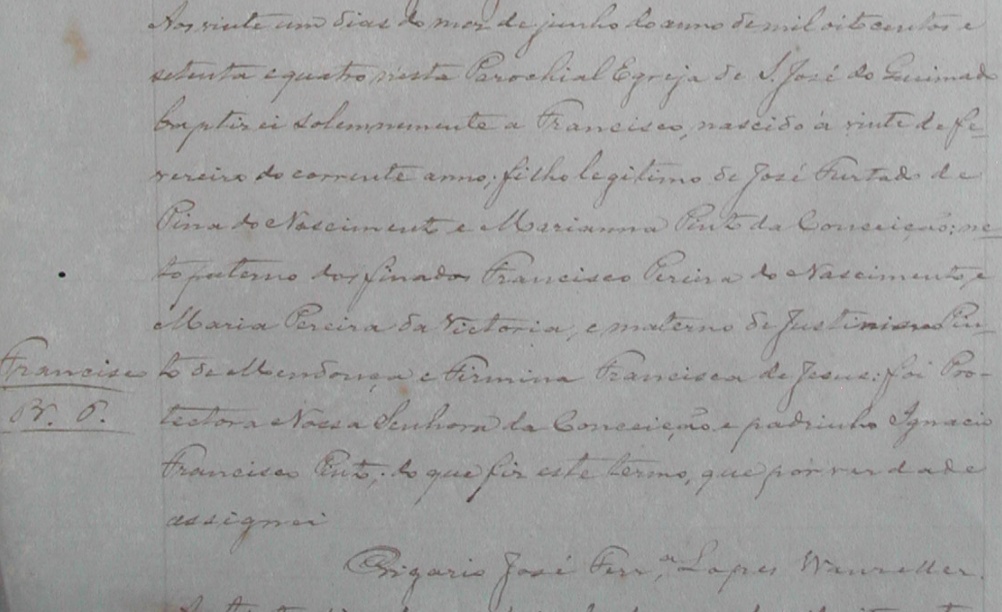 Aos vinte um dias do mez de junho do anno de mil oito centos e
setenta e quatro nesta Parochial Egreja de S. José do
baptizei solemnemente a Francisco, nascido á vinte de fe-
vereiro do corrente anno; filho legitimo de José Furtado de
Pina do Nascimento e Marianna Pinto da Conceição: ne-
to paterno dos finados Francisco Pereira do Nascimento, e
Maria Pereira da Victoria, e materno de Justiniano Pin-
Francisco
to de Mendonça e Firmina Francisca de Jesus: foi Pro-
tectora Nossa Senhora da Conceição e padrinho Ignacio
Francisco Pinto; do que fiz este termo, que por verdade
assignei
Vigario José Ferr.ª Lopes